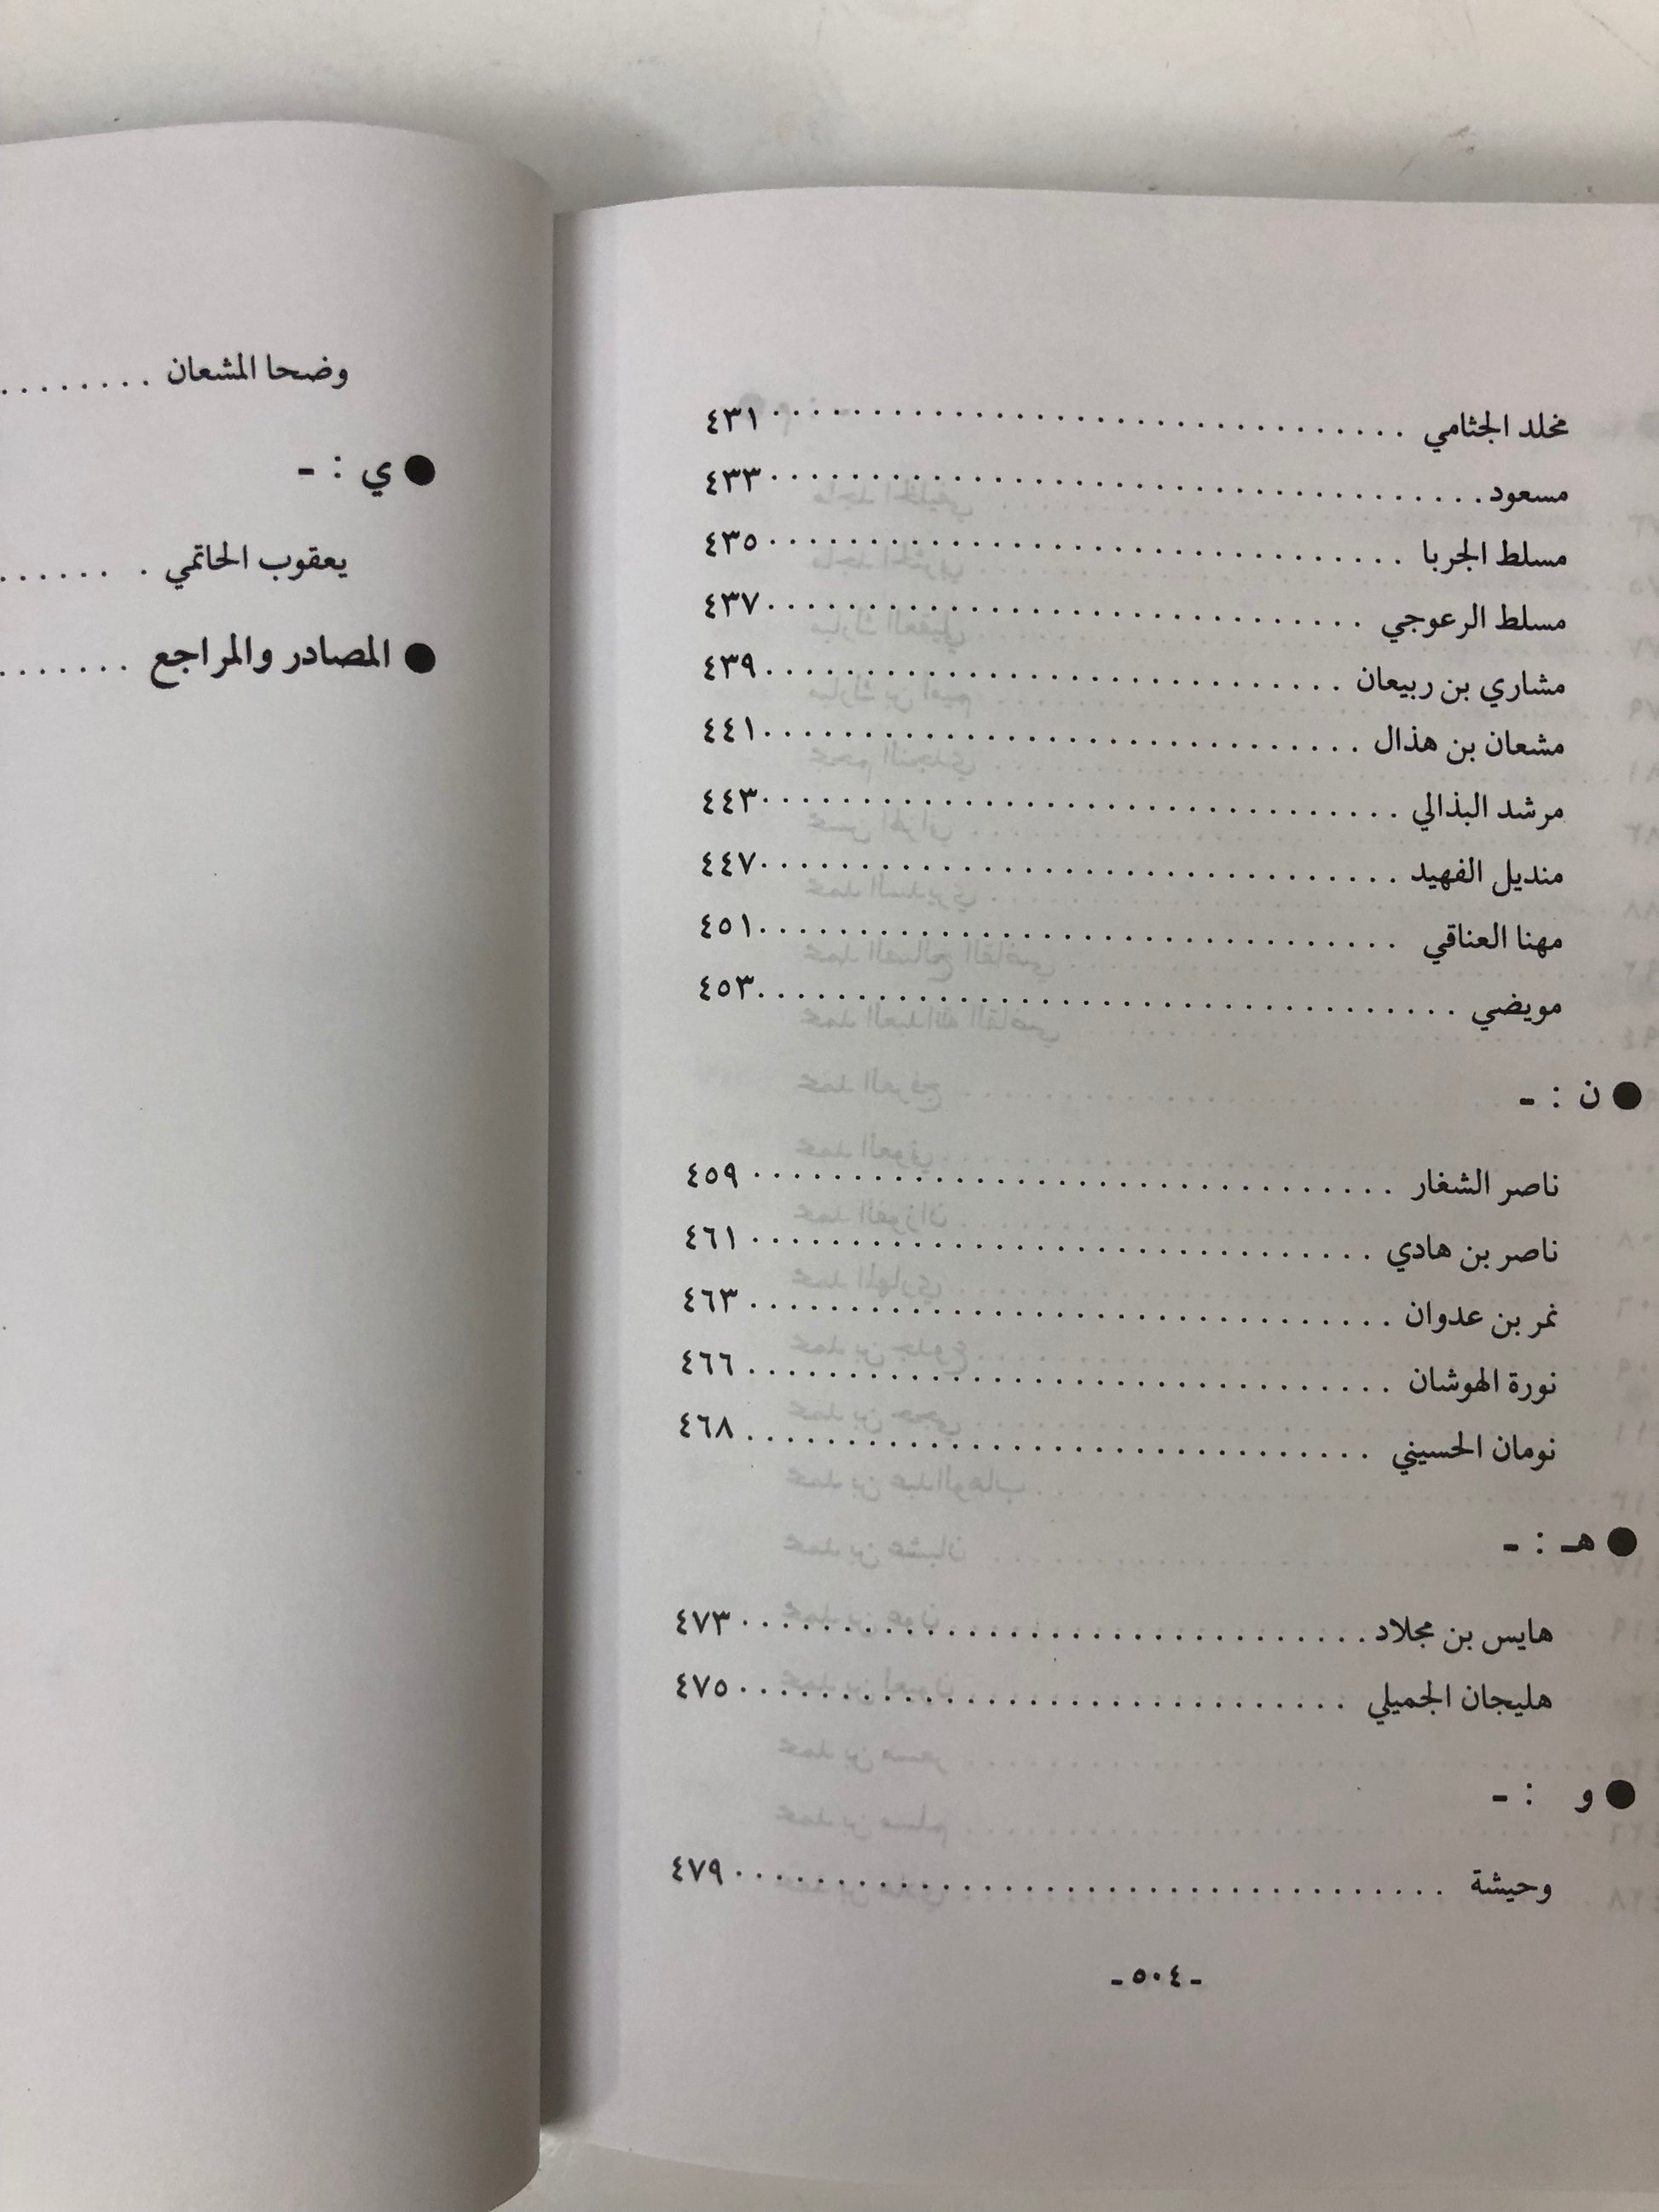 مخلد الجثامي ................................ ٤٣١
مسعود .................................... ٤٣٣
مسلط الجربا ................................ ٤٣٥
مسلط الرعوجي .............................. ٤٣٧
مشاري بن ربيعان ............................. ٤٣٩
مشعان بن هذال .............................. ٤٤١
مرشد البذالي ................................ ٤٤٣
منديل الفهيد ................................ ٤٤٧
مهنا العناقي ................................ ٤٥١
مويضي ................................... ٤٥٣
● ن : -
ناصر الشغار ................................ ٤٥٩
ناصر بن هادي ............................... ٤٦١
نمر بن عدوان ................................ ٤٦٣
نورة الهوشان ................................ ٤٦٦
نومان الحسيني ............................... ٤٦٨
● هـ : -
هايس بن مجلاد ............................... ٤٧٣
هليجان الجميلي .............................. ٤٧٥
● و : -
وحيشة .................................... ٤٧٩
- ٥٠٤ -
وضحا المشعان ........
● ي : -
يعقوب الحاتمي .......
● المصادر والمراجع .......